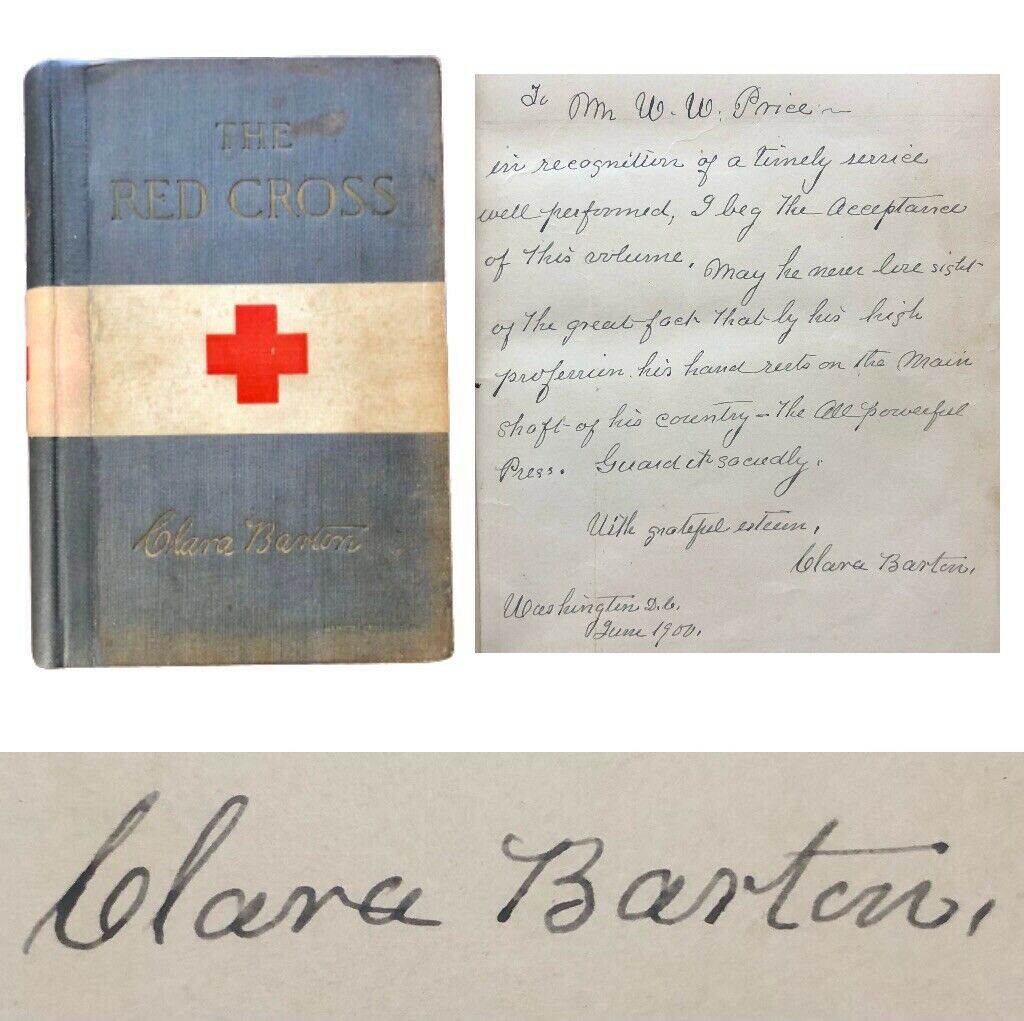 THE
RED CROSS
Clara Barton
To Mr W. W. Price
in recognition of a timely service
well performed, I beg the Acceptance
of this volume. May he never lose sight
of the great fact that by his high
profession his hand rests on the Main
shaft of his country - the All powerful
Press. Guard it sacredly.
With grateful esteem,
Clara Barton.
Washington D.C.
June 1900.
Clara Barton.